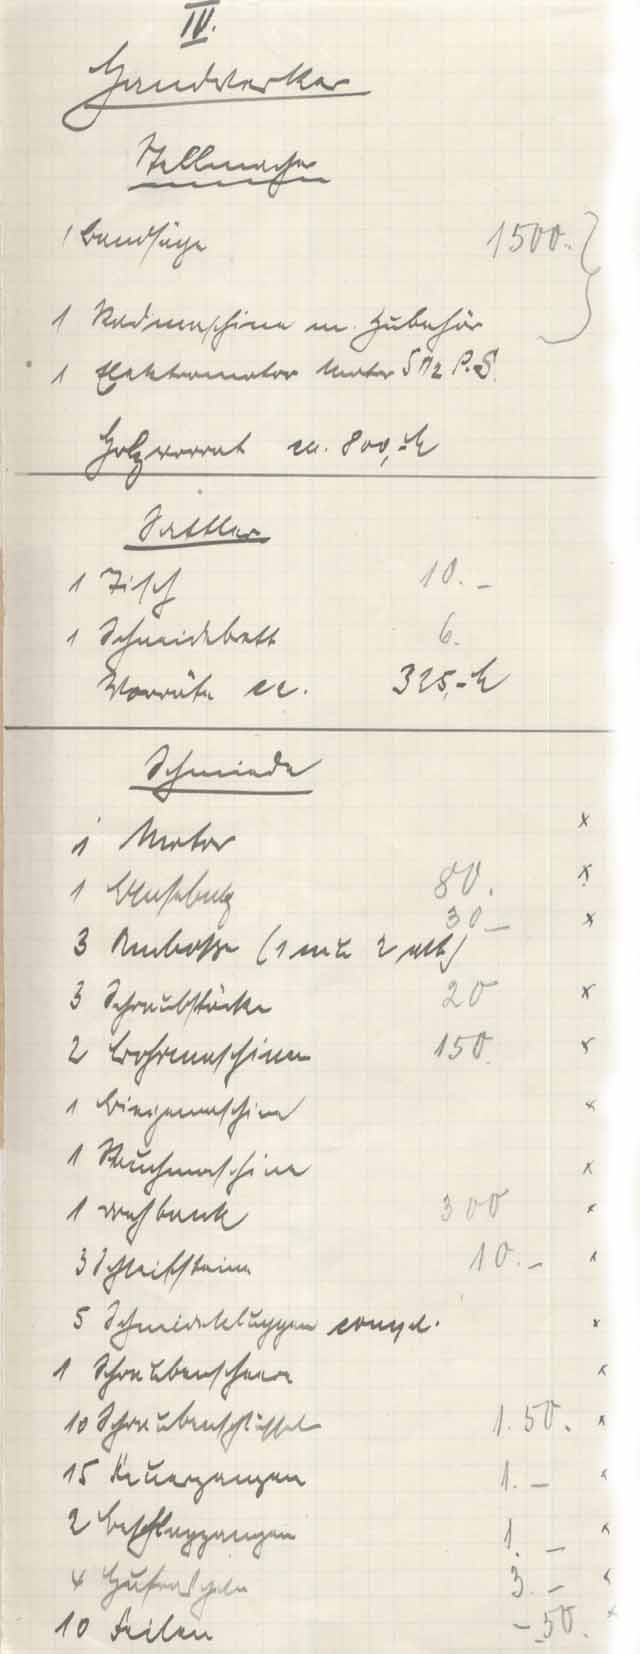 IV.
Handwerker
Stellmacher
1 Bandsäge 1500.
1 Radmaschine m. Zubehör
1 Elektromotor Motor 5 1/2 P.S.
Holzvorrat ca. 800,-
Sattler
1 Tisch 10.-
1 Schneidebrett 6.
Vorräte ca. 325,-
Schmiede
1 Motor x
1 Blasebalg 80. x
30.- x
3 Amboße (1 neu 2 alt)
3 Schraubstöcke 20 x
2 Bohrmaschinen 150. x
1 Biegemaschine x
1 Stauchmaschine x
1 Drehbank 300 x
3 Schleifsteine 10.- x
5 Schneidekluppen compl. x
1 Schraubenschere x
10 Schraubenschlüssel 1.50. x
15 Feuerzangen 1.- x
2 Beschlagzangen 1.- x
4 Hufraspeln 3.- x
10 Feilen -.50. x